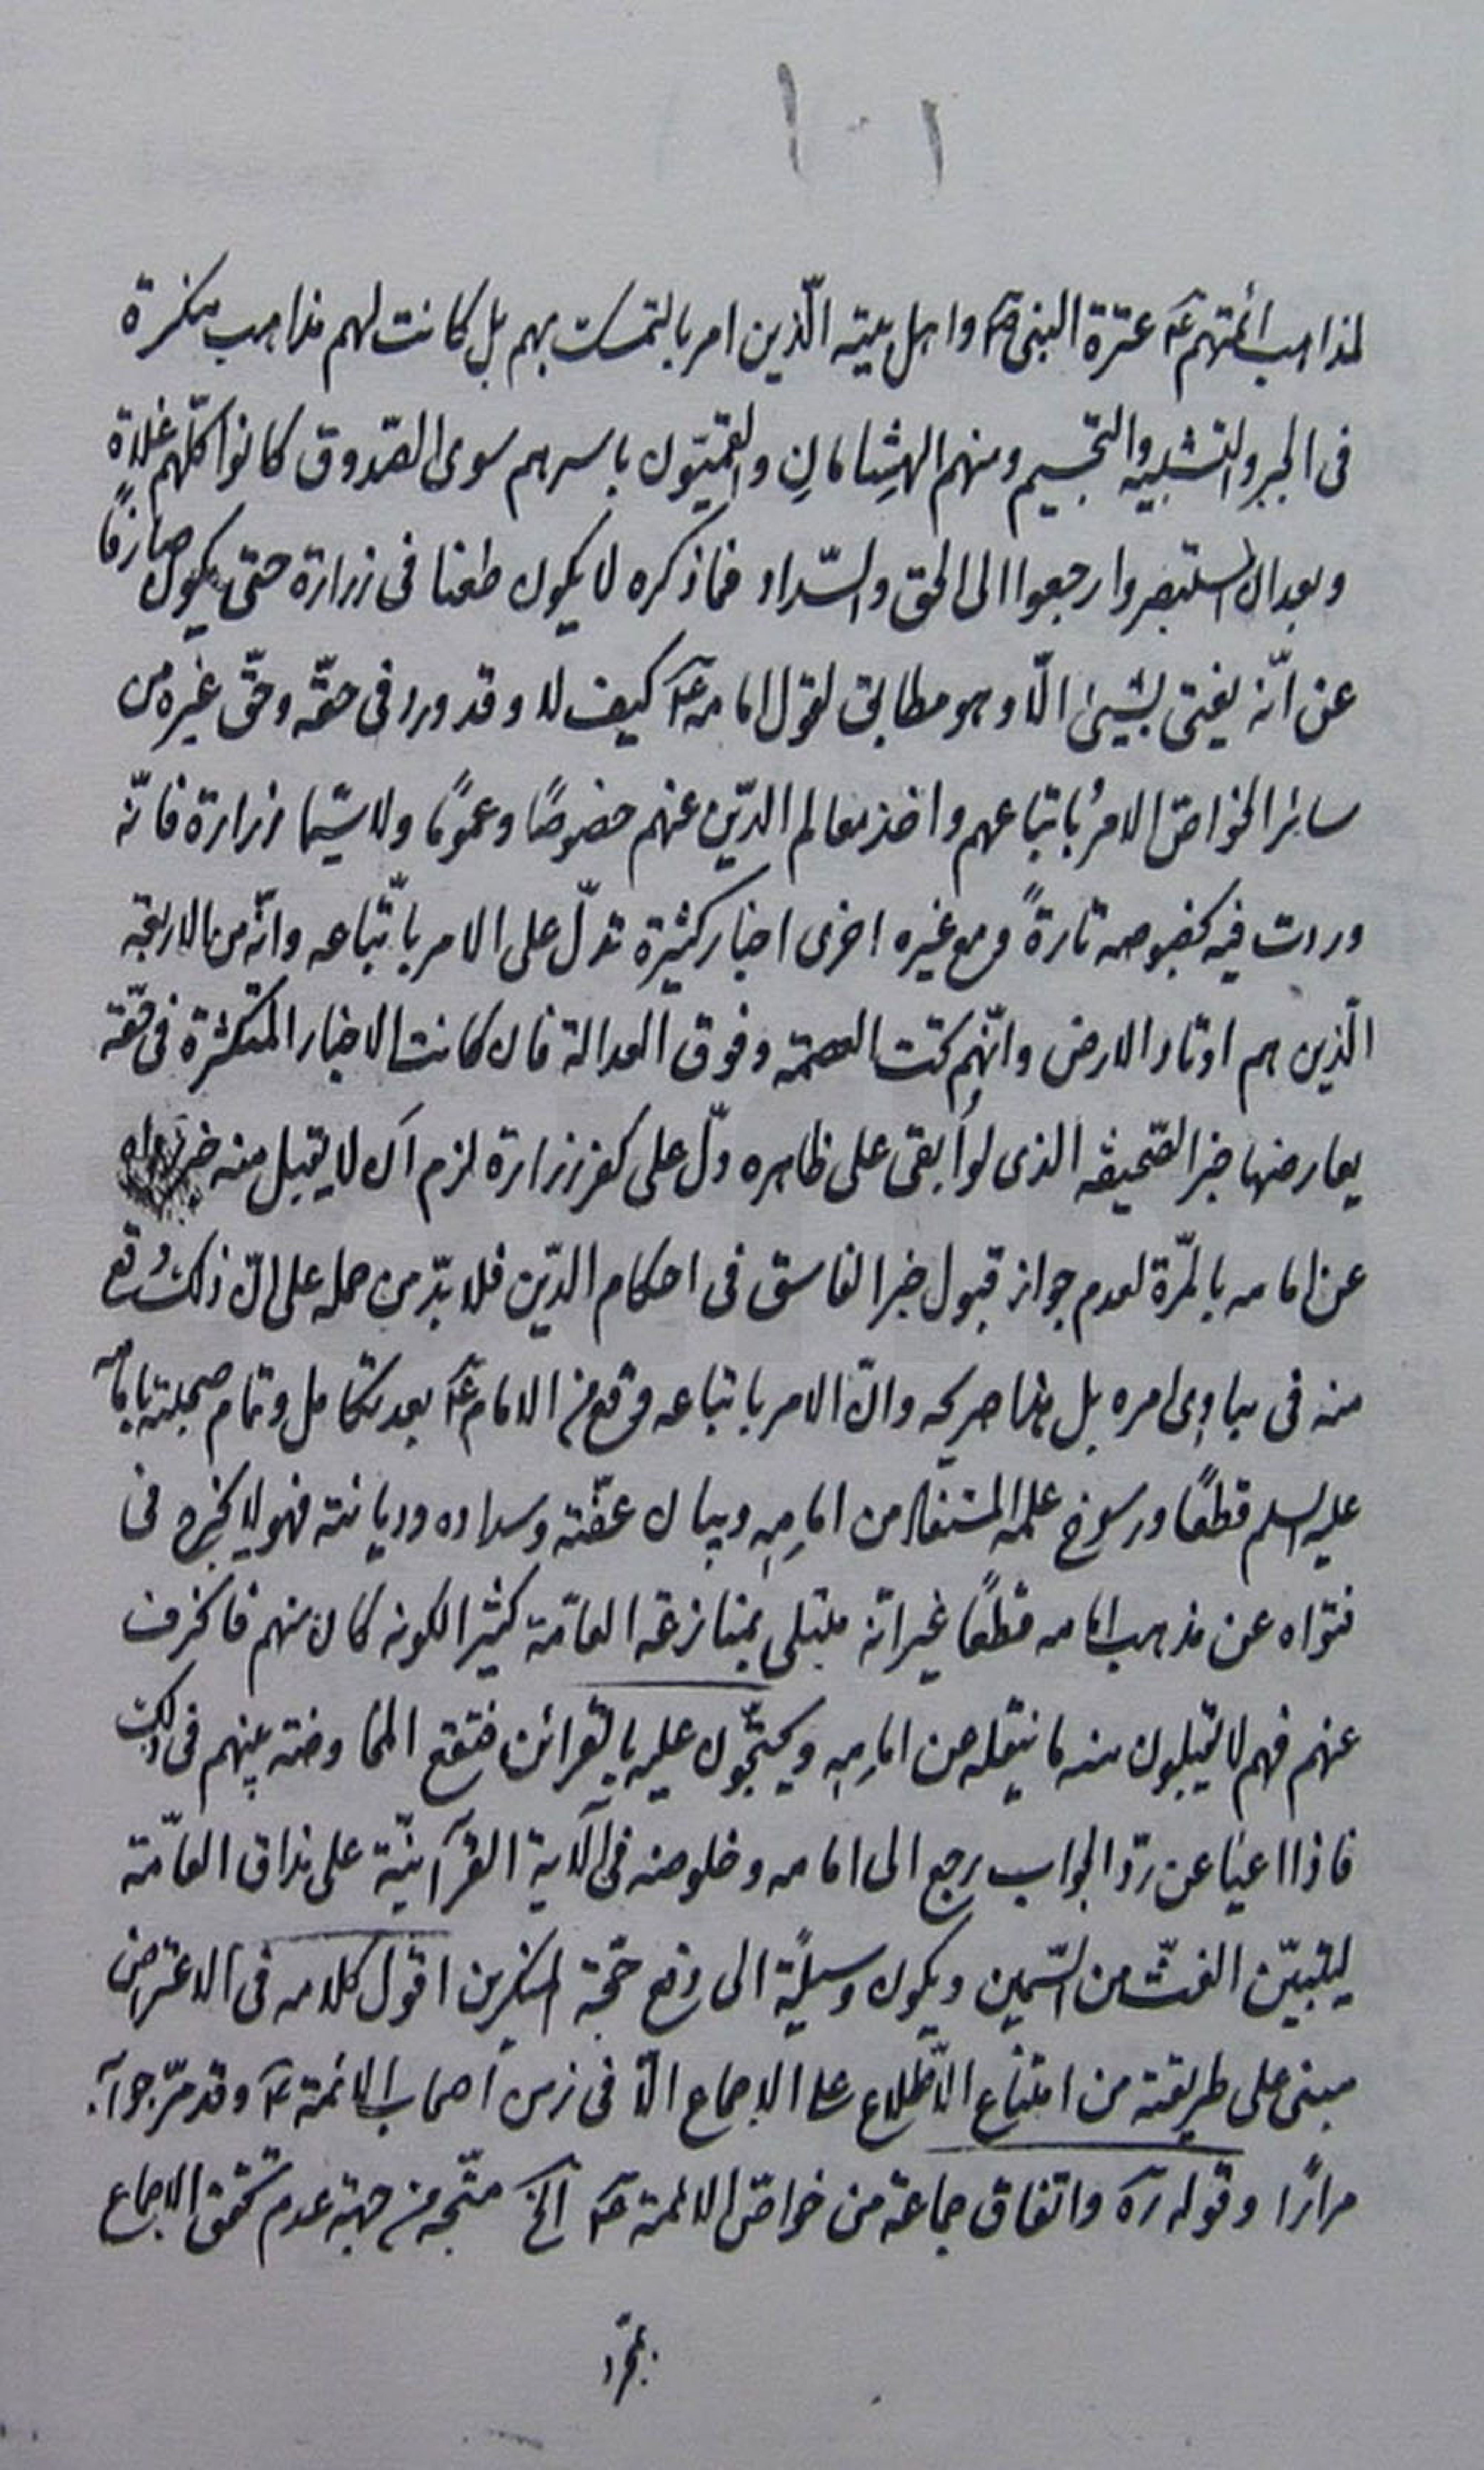 ١٠١
لمذاهب أئمتهم عۤ عترة النبی صۤ واهل بیته الّذین امر بالتمسک بهم بل کانت لهم مذاهب منکرة
فی الجبر والتشبیه والتجسیم ومنهم الهِشامانِ والقمّیّون باسرهم سوی الصّدوق کانوا کلّهم غلاة
وبعد ان استبصروا رجعوا الی الحق والسّداد فما ذکره لا یکون طعنا فی زرارة حتی یکون صارفًا
عن انّه یفتی بشیئ الّا وهو مطابق لقول امامه عۤ کیف لا وقد ورد فی حقّه وحقّ غیره من
سائر الخواصّ الامرُ باتباعهم واخذ معالم الدّین عنهم خصوصًا وعمومًا ولا سیّما زرارة فانّه
وردت فیه بخصوصه تارةً ومع غیره اخری اخبار کثیرة تدلّ علی الامر باتّباعه وانّه من الاربعة
الّذین هم اوتاد الارض وانّهم تحت العصمة وفوق العدالة فان کانت الاخبار المتکثرة فی حقّه
یعارضها خبر الصّحیفه الذی لو أبقی علی ظاهره دلّ علی کفر زرارة لزم ان لا یقبل منه خبر رواه
عن امامه بالمرّة لعدم جواز قبول خبر الفاسق فی احکام الدّین فلا بدّ من حمله علی انّ ذلک وقع
منه فی مبادی امره بل هذا صریحه وانّ الامر باتباعه وقع من الامام عۤ بعد تکامل وتمام صحبته بامامه
علیه السلم قطعًا ورسوخ علمه المستفاد من امامِهِ وبیان عفّته وسداده ودیانته فهو لا یخرج فی
فتواه عن مذهب امامه قطعًا غیر انّه مبتلی بمنازعة العامّة کثیرا لکونه کان منهم فانحرف
عنهم فهم لا یقبلون منه ما ینقله عن امامِهِ ویحتجّون علیه بالقرائن فتقع المخاوضة بینهم فی ذلک
فاذا اعیا عن ردّ الجواب رجع الی امامه وخلوصه فی الآیة القرآنیّة علی مذاق العامّة
لیتبیّن الغثّ من السّمین ویکون وسیلةً الی دفع حجّة المنکرین اقول کلامه فی الاعتراض
مبنی علی طریقته من امتناع الاطّلاع علی الاجماع الّا فی زمن اصحاب الائمة عۤ وقد مرّ جوابه
مرارًا وقوله رۤه واتفاق جماعة من خواصّ الائمة عۤ الخ متّجه من جهة عدم تحقق الاجماع
بمجرّد